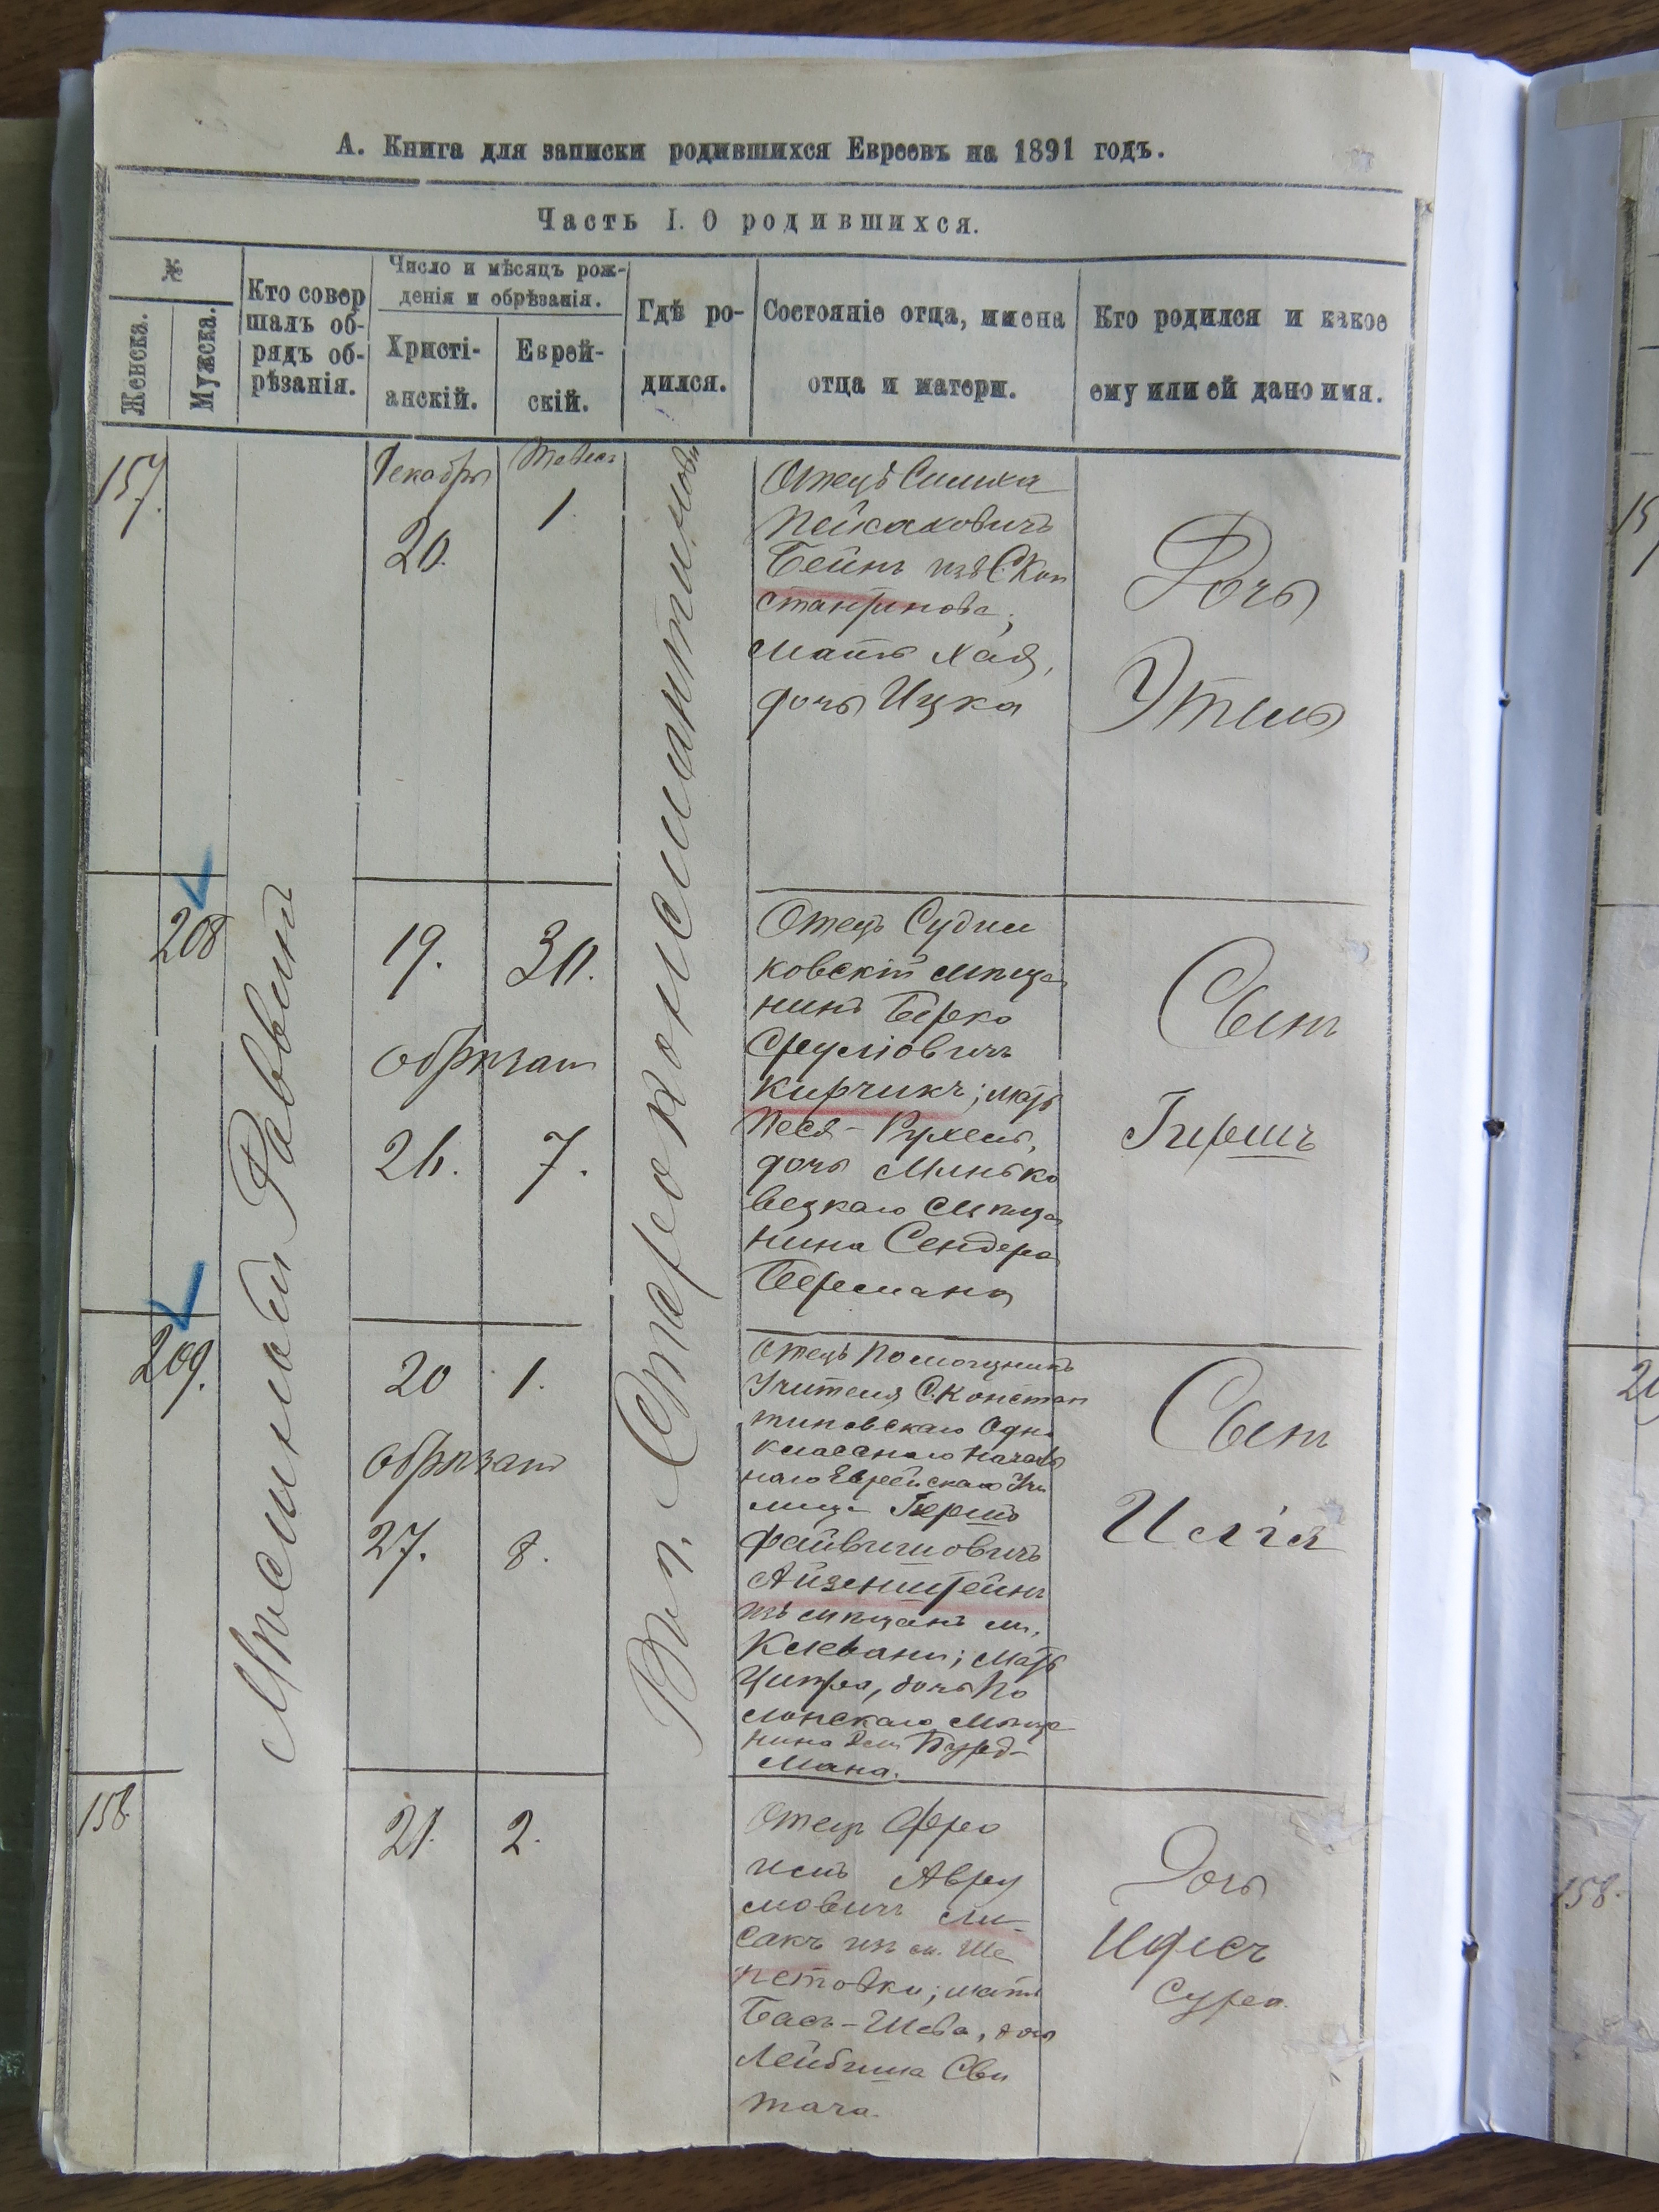 А. Книга для записки родившихся Евреевъ на 1891 годъ.
Часть I. О родившихся.
№
Женска.
Мужска.
Кто совер
шалъ об-
рядъ об-
рѣзанія.
Число и мѣсяцъ рож-
денія и обрѣзанія.
Христі-
анскій.
Еврей-
скій.
Гдѣ ро-
дился.
Состояніе отца, имена
отца и матери.
Кто родился и какое
ему или ей дано имя.
Мѣстный Раввинъ
Въ г. Староконстантиновѣ
157.
Декабря
20.
Тевес
1.
Отецъ Симха
Пейсаховичъ
Бейнъ изъ С. Кон
стантинова;
мать Хая,
дочь Ицка
Дочь
Этель
208
19.
30.
обрѣзанъ
26.
7.
Отецъ Судил
ковскій мѣща
нинъ Берко
Срулiовичъ
Кирчикъ; мать
Песя-Рухель,
дочь Минько
вецкаго мѣща
нина Сендера
Бермана
Сынъ
Гиршъ
209.
20
1.
обрѣзанъ
27.
8.
Отецъ Помощникъ
Учителя С. Констан
тиновскаго Одно
класснаго Началь
наго Еврейскаго Учи
лища Гершъ
Файвишовичъ
Айзенштейнъ
изъ мѣщанъ м.
Клевани; мать
Ципра, дочь По
лонскаго мѣща
нина
мана.
Сынъ
Илія
158.
21.
2.
Отецъ Эфро
имъ Авру
мовичъ Ли
сакъ изъ м. Ше
петовки; мать
Бася-Шева, дочь
Лейбиша Сви
тача.
Дочь
Идесъ
Сура.
15
158.